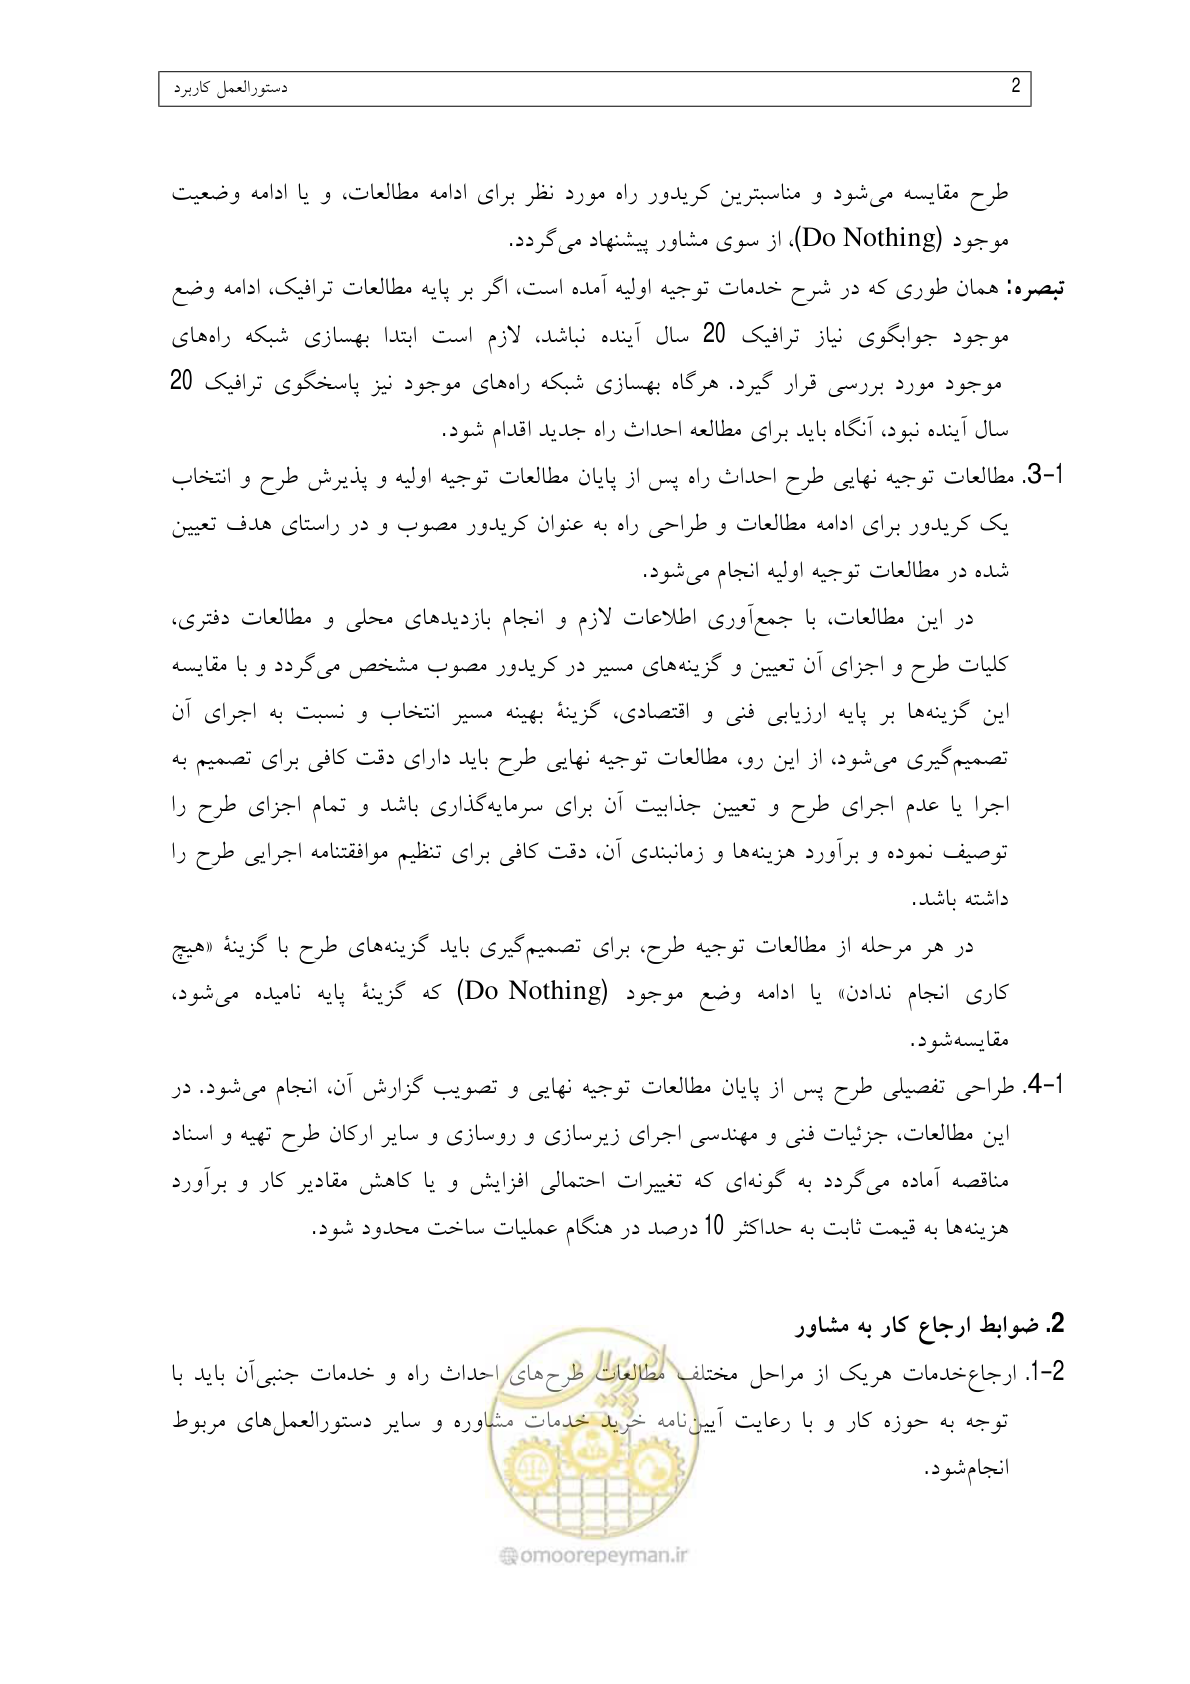 2 دستورالعمل کاربرد
طرح مقایسه می‌شود و مناسبترین کریدور راه مورد نظر برای ادامه مطالعات، و یا ادامه وضعیت
موجود (Do Nothing)، از سوی مشاور پیشنهاد می‌گردد.
تبصره: همان طوری که در شرح خدمات توجیه اولیه آمده است، اگر بر پایه مطالعات ترافیک، ادامه وضع
موجود جوابگوی نیاز ترافیک 20 سال آینده نباشد، لازم است ابتدا بهسازی شبکه راه‌های
موجود مورد بررسی قرار گیرد. هرگاه بهسازی شبکه راه‌های موجود نیز پاسخگوی ترافیک 20
سال آینده نبود، آنگاه باید برای مطالعه احداث راه جدید اقدام شود.
3-1. مطالعات توجیه نهایی طرح احداث راه پس از پایان مطالعات توجیه اولیه و پذیرش طرح و انتخاب
یک کریدور برای ادامه مطالعات و طراحی راه به عنوان کریدور مصوب و در راستای هدف تعیین
شده در مطالعات توجیه اولیه انجام می‌شود.
در این مطالعات، با جمع‌آوری اطلاعات لازم و انجام بازدیدهای محلی و مطالعات دفتری،
کلیات طرح و اجزای آن تعیین و گزینه‌های مسیر در کریدور مصوب مشخص می‌گردد و با مقایسه
این گزینه‌ها بر پایه ارزیابی فنی و اقتصادی، گزینۀ بهینه مسیر انتخاب و نسبت به اجرای آن
تصمیم‌گیری می‌شود، از این رو، مطالعات توجیه نهایی طرح باید دارای دقت کافی برای تصمیم به
اجرا یا عدم اجرای طرح و تعیین جذابیت آن برای سرمایه‌گذاری باشد و تمام اجزای طرح را
توصیف نموده و برآورد هزینه‌ها و زمانبندی آن، دقت کافی برای تنظیم موافقتنامه اجرایی طرح را
داشته باشد.
در هر مرحله از مطالعات توجیه طرح، برای تصمیم‌گیری باید گزینه‌های طرح با گزینۀ «هیچ
کاری انجام ندادن» یا ادامه وضع موجود (Do Nothing) که گزینۀ پایه نامیده می‌شود،
مقایسه‌شود.
4-1. طراحی تفصیلی طرح پس از پایان مطالعات توجیه نهایی و تصویب گزارش آن، انجام می‌شود. در
این مطالعات، جزئیات فنی و مهندسی اجرای زیرسازی و روسازی و سایر ارکان طرح تهیه و اسناد
مناقصه آماده می‌گردد به گونه‌ای که تغییرات احتمالی افزایش و یا کاهش مقادیر کار و برآورد
هزینه‌ها به قیمت ثابت به حداکثر 10 درصد در هنگام عملیات ساخت محدود شود.
2. ضوابط ارجاع کار به مشاور
1-2. ارجاع‌خدمات هریک از مراحل مختلف مطالعات طرح‌های احداث راه و خدمات جنبی‌آن باید با
توجه به حوزه کار و با رعایت آیین‌نامه خرید خدمات مشاوره و سایر دستورالعمل‌های مربوط
انجام‌شود.
امور پیمان
@omoorepeyman.ir